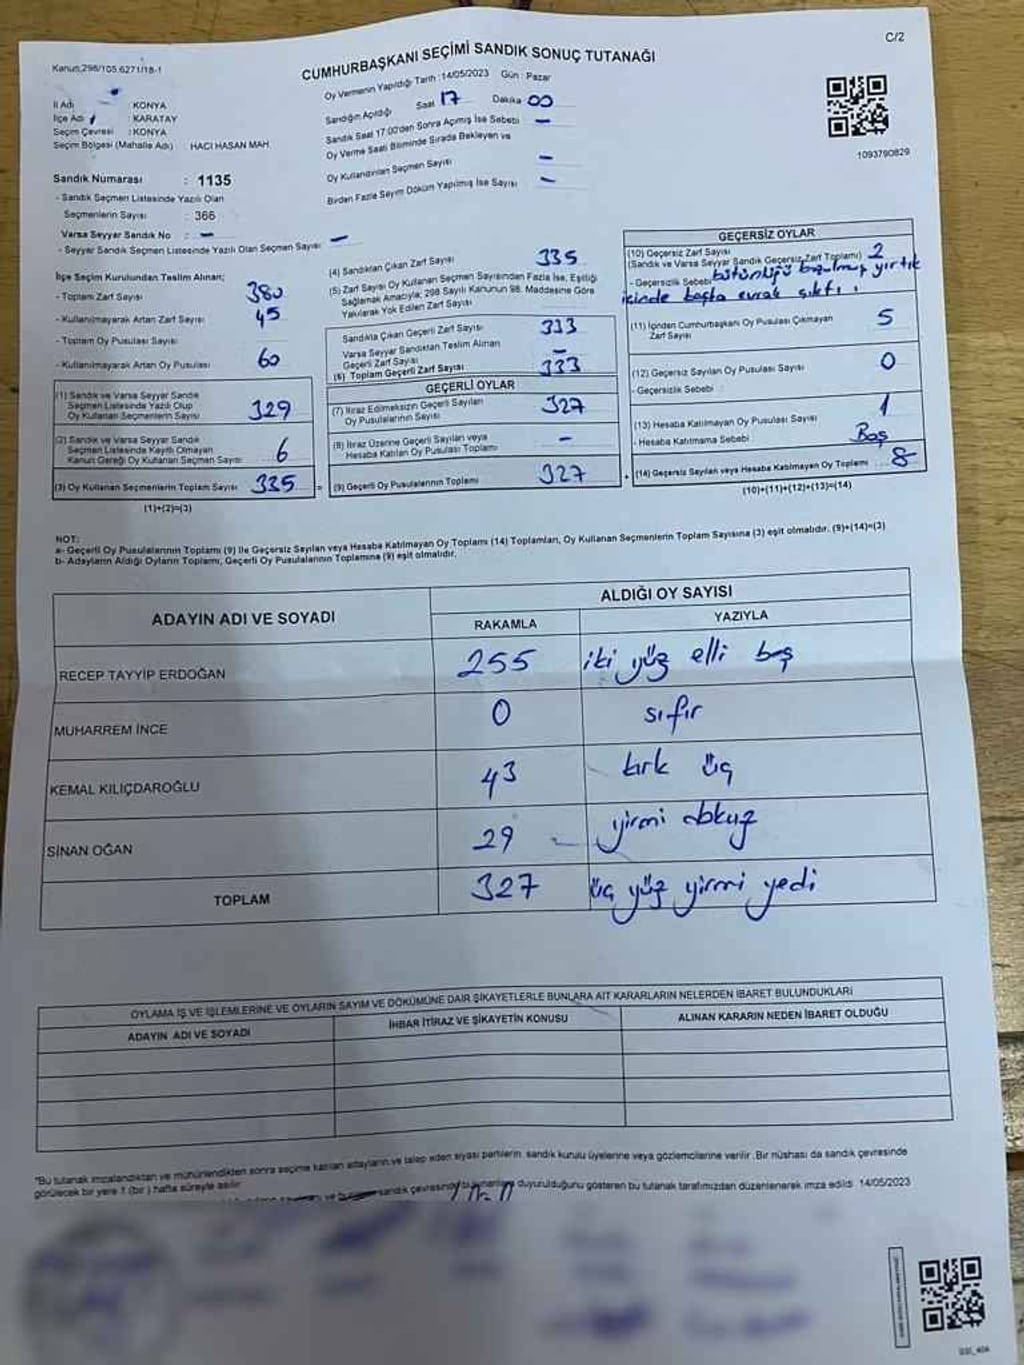 C/2
Kanun;298/105.6271/18-1
CUMHURBAŞKANI SEÇİMİ SANDIK SONUÇ TUTANAĞI
Oy Vermenin Yapıldığı Tarih :14/05/2023 Gün : Pazar
Sandığın Açıldığı Saat 17 Dakika 00
Sandık Saat 17:00'den Sonra Açımış İse Sebebi –
Oy Verme Saati Bitiminde Sırada Bekleyen ve
Oy Kullandırılan Seçmen Sayısı –
Birden Fazla Sayım Döküm Yapılmış İse Sayısı –
1093790829
İl Adı : KONYA
İlçe Adı : KARATAY
Seçim Çevresi : KONYA
Seçim Bölgesi (Mahalle Adı) : HACI HASAN MAH.
Sandık Numarası : 1135
- Sandık Seçmen Listesinde Yazılı Olan
Seçmenlerin Sayısı : 366
Varsa Seyyar Sandık No : –
- Seyyar Sandık Seçmen Listesinde Yazılı Olan Seçmen Sayısı –
İlçe Seçim Kurulundan Teslim Alınan;
- Toplam Zarf Sayısı 380
- Kullanılmayarak Artan Zarf Sayısı 45
- Toplam Oy Pusulası Sayısı
- Kullanılmayarak Artan Oy Pusulası 60
(1) Sandık ve Varsa Seyyar Sandık
Seçmen Listesinde Yazılı Olup
Oy Kullanan Seçmenlerin Sayısı 329
(2) Sandık ve Varsa Seyyar Sandık
Seçmen Listesinde Kayıtlı Olmayan
Kanun Gereği Oy Kullanan Seçmen Sayısı 6
(3) Oy Kullanan Seçmenlerin Toplam Sayısı 335
(1)+(2)=(3)
(4) Sandıktan Çıkan Zarf Sayısı 335
(5) Zarf Sayısı Oy Kullanan Seçmen Sayısından Fazla İse, Eşitliği
Sağlamak Amacıyla, 298 Sayılı Kanunun 98. Maddesine Göre
Yakılarak Yok Edilen Zarf Sayısı
Sandıkta Çıkan Geçerli Zarf Sayısı 333
Varsa Seyyar Sandıktan Teslim Alınan
Geçerli Zarf Sayısı –
(6) Toplam Geçerli Zarf Sayısı 333
GEÇERLİ OYLAR
(7) İtiraz Edilmeksizin Geçerli Sayılan
Oy Pusulalarının Sayısı 327
(8) İtiraz Üzerine Geçerli Sayılan veya
Hesaba Katılan Oy Pusulası Toplamı –
= (9) Geçerli Oy Pusulalarının Toplamı 327
GEÇERSİZ OYLAR
(10) Geçersiz Zarf Sayısı
(Sandık ve Varsa Seyyar Sandık Geçersiz Zarf Toplamı) 2
- Geçersizlik Sebebi bütünlüğü bozulmuş yırtık
içinde başka evrak çıktı.
(11) İçinden Cumhurbaşkanı Oy Pusulası Çıkmayan
Zarf Sayısı 5
(12) Geçersiz Sayılan Oy Pusulası Sayısı 0
- Geçersizlik Sebebi :
(13) Hesaba Katılmayan Oy Pusulası Sayısı 1
- Hesaba Katılmama Sebebi : Boş
+ (14) Geçersiz Sayılan veya Hesaba Katılmayan Oy Toplamı 8
(10)+(11)+(12)+(13)=(14)
NOT:
a- Geçerli Oy Pusulalarının Toplamı (9) ile Geçersiz Sayılan veya Hesaba Katılmayan Oy Toplamı (14) Toplamları, Oy Kullanan Seçmenlerin Toplam Sayısına (3) eşit olmalıdır. (9)+(14)=(3)
b- Adayların Aldığı Oyların Toplamı, Geçerli Oy Pusulalarının Toplamına (9) eşit olmalıdır.
ADAYIN ADI VE SOYADI ALDIĞI OY SAYISI
RAKAMLA YAZIYLA
RECEP TAYYİP ERDOĞAN 255 iki yüz elli beş
MUHARREM İNCE 0 sıfır
KEMAL KILIÇDAROĞLU 43 kırk üç
SİNAN OĞAN 29 – yirmi dokuz
TOPLAM 327 üç yüz yirmi yedi
OYLAMA İŞ VE İŞLEMLERİNE VE OYLARIN SAYIM VE DÖKÜMÜNE DAİR ŞİKAYETLERLE BUNLARA AİT KARARLARIN NELERDEN İBARET BULUNDUKLARI
ADAYIN ADI VE SOYADI İHBAR İTİRAZ VE ŞİKAYETİN KONUSU ALINAN KARARIN NEDEN İBARET OLDUĞU
"Bu tutanak imzalandıktan ve mühürlendikten sonra seçime katılan adayların ve talep eden siyasi partilerin, sandık kurulu üyelerine veya gözlemcilerine verilir. Bir nüshası da sandık çevresinde
görülecek bir yere 1 (bir) hafta süreyle asılır.
sandık çevresinde duyurulduğunu gösteren bu tutanak tarafımızdan düzenlenerek imza edildi. 14/05/2023